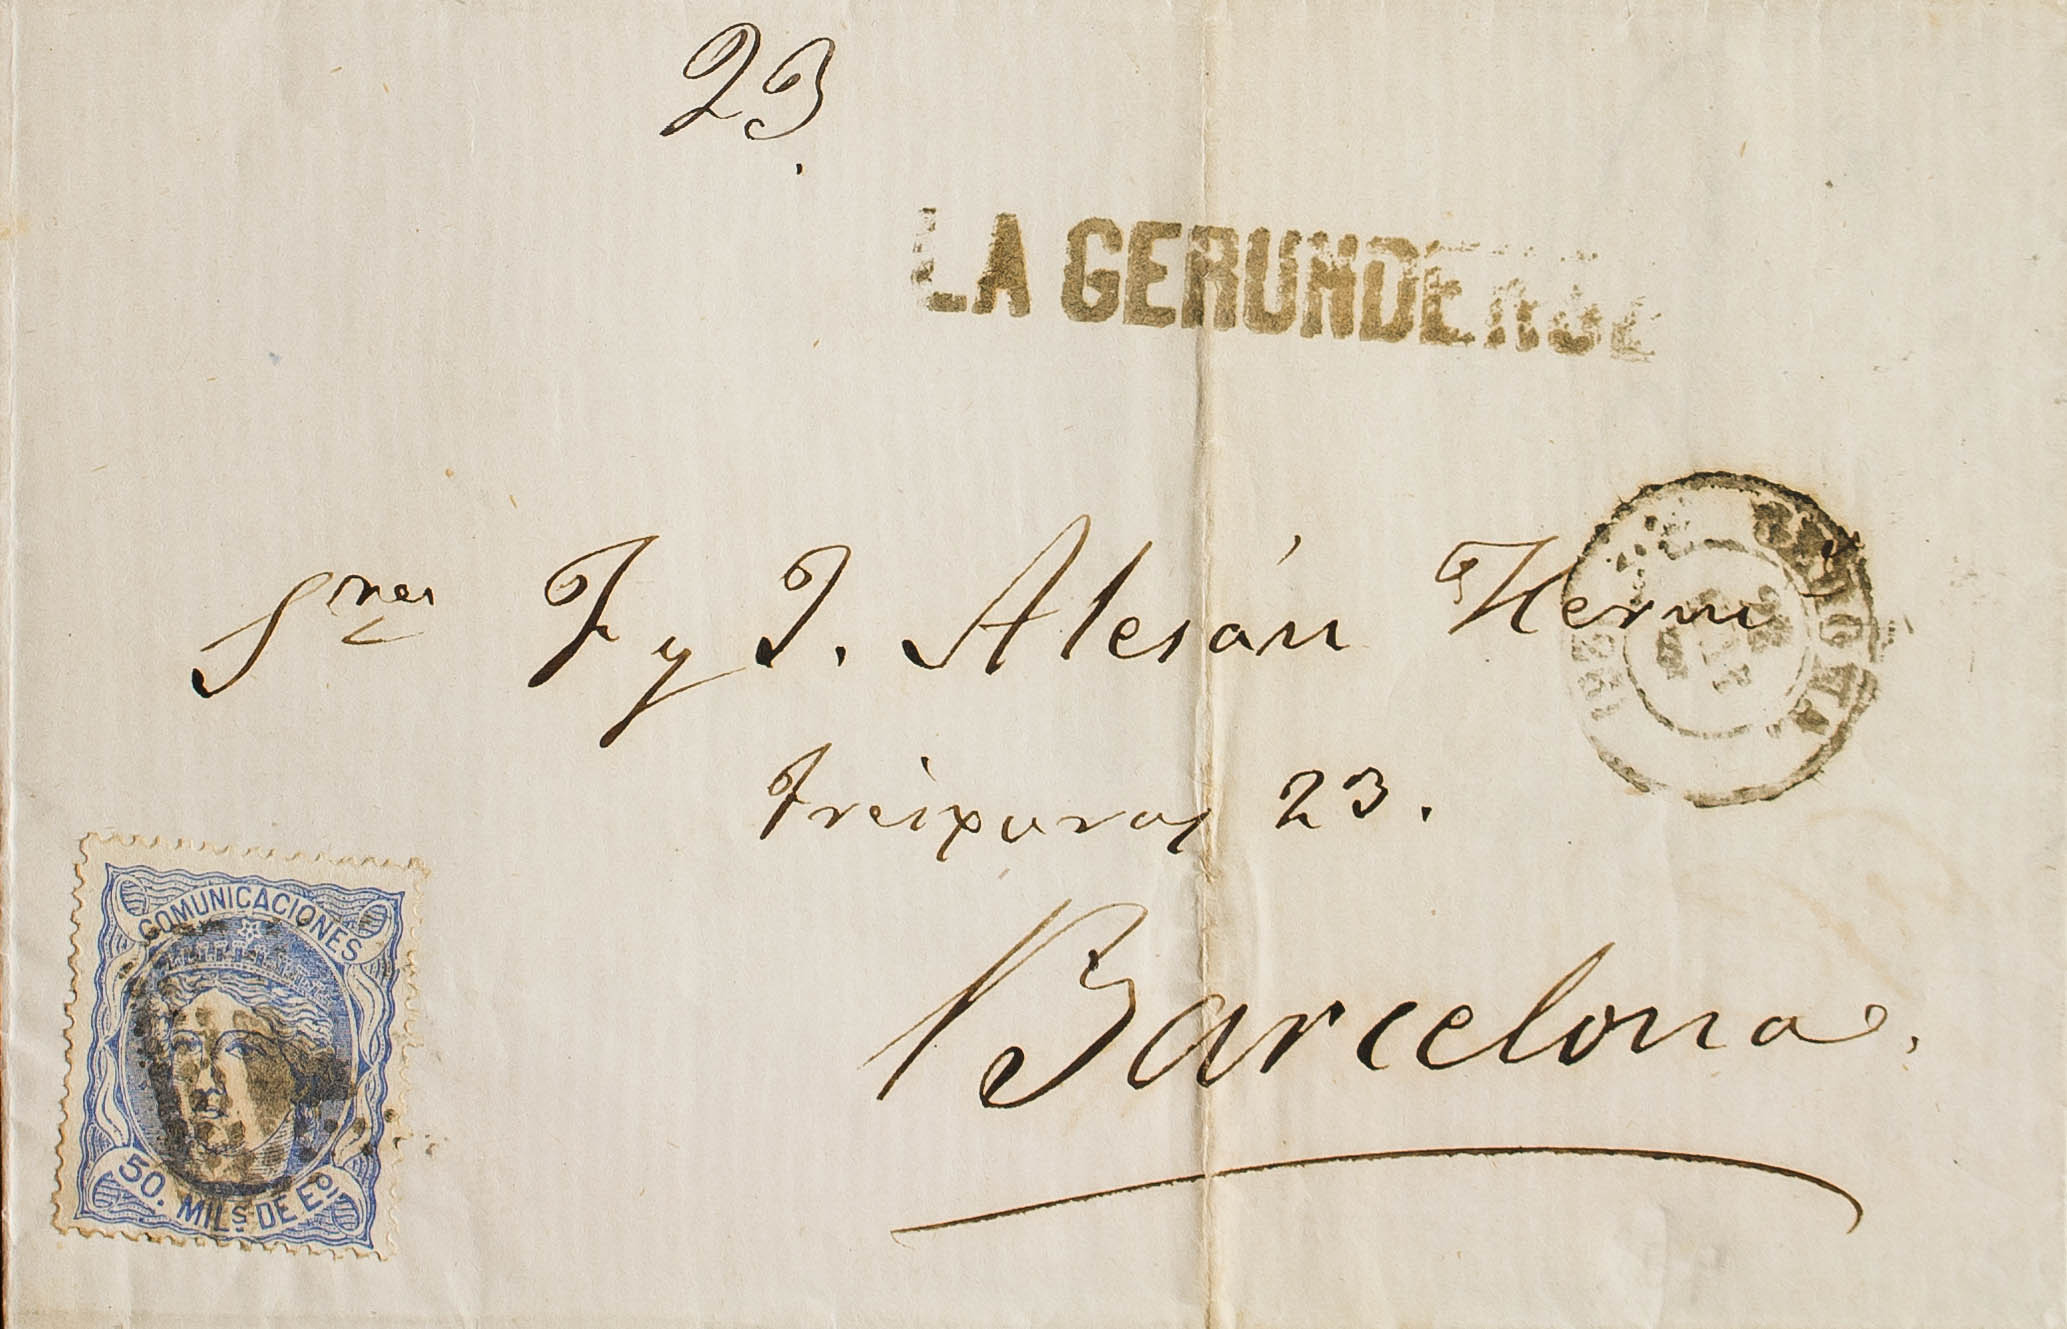 23.
LA GERUNDENSE
Sres F y J. Alesán Herms
Freixuras 23.
Barcelona.
COMUNICACIONES
50. MILS DE Eo